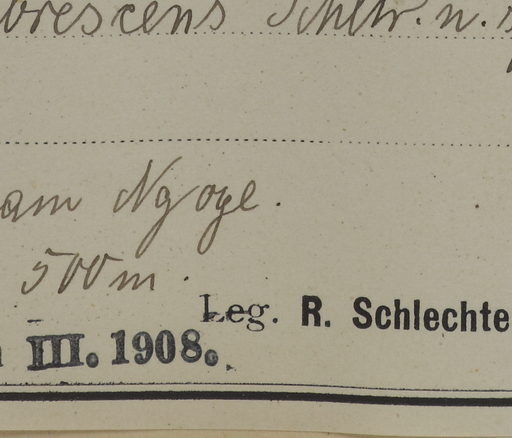 orescens Schltr. n. s
am Ngoye.
500 m.
Leg. R. Schlechte
III. 1908.